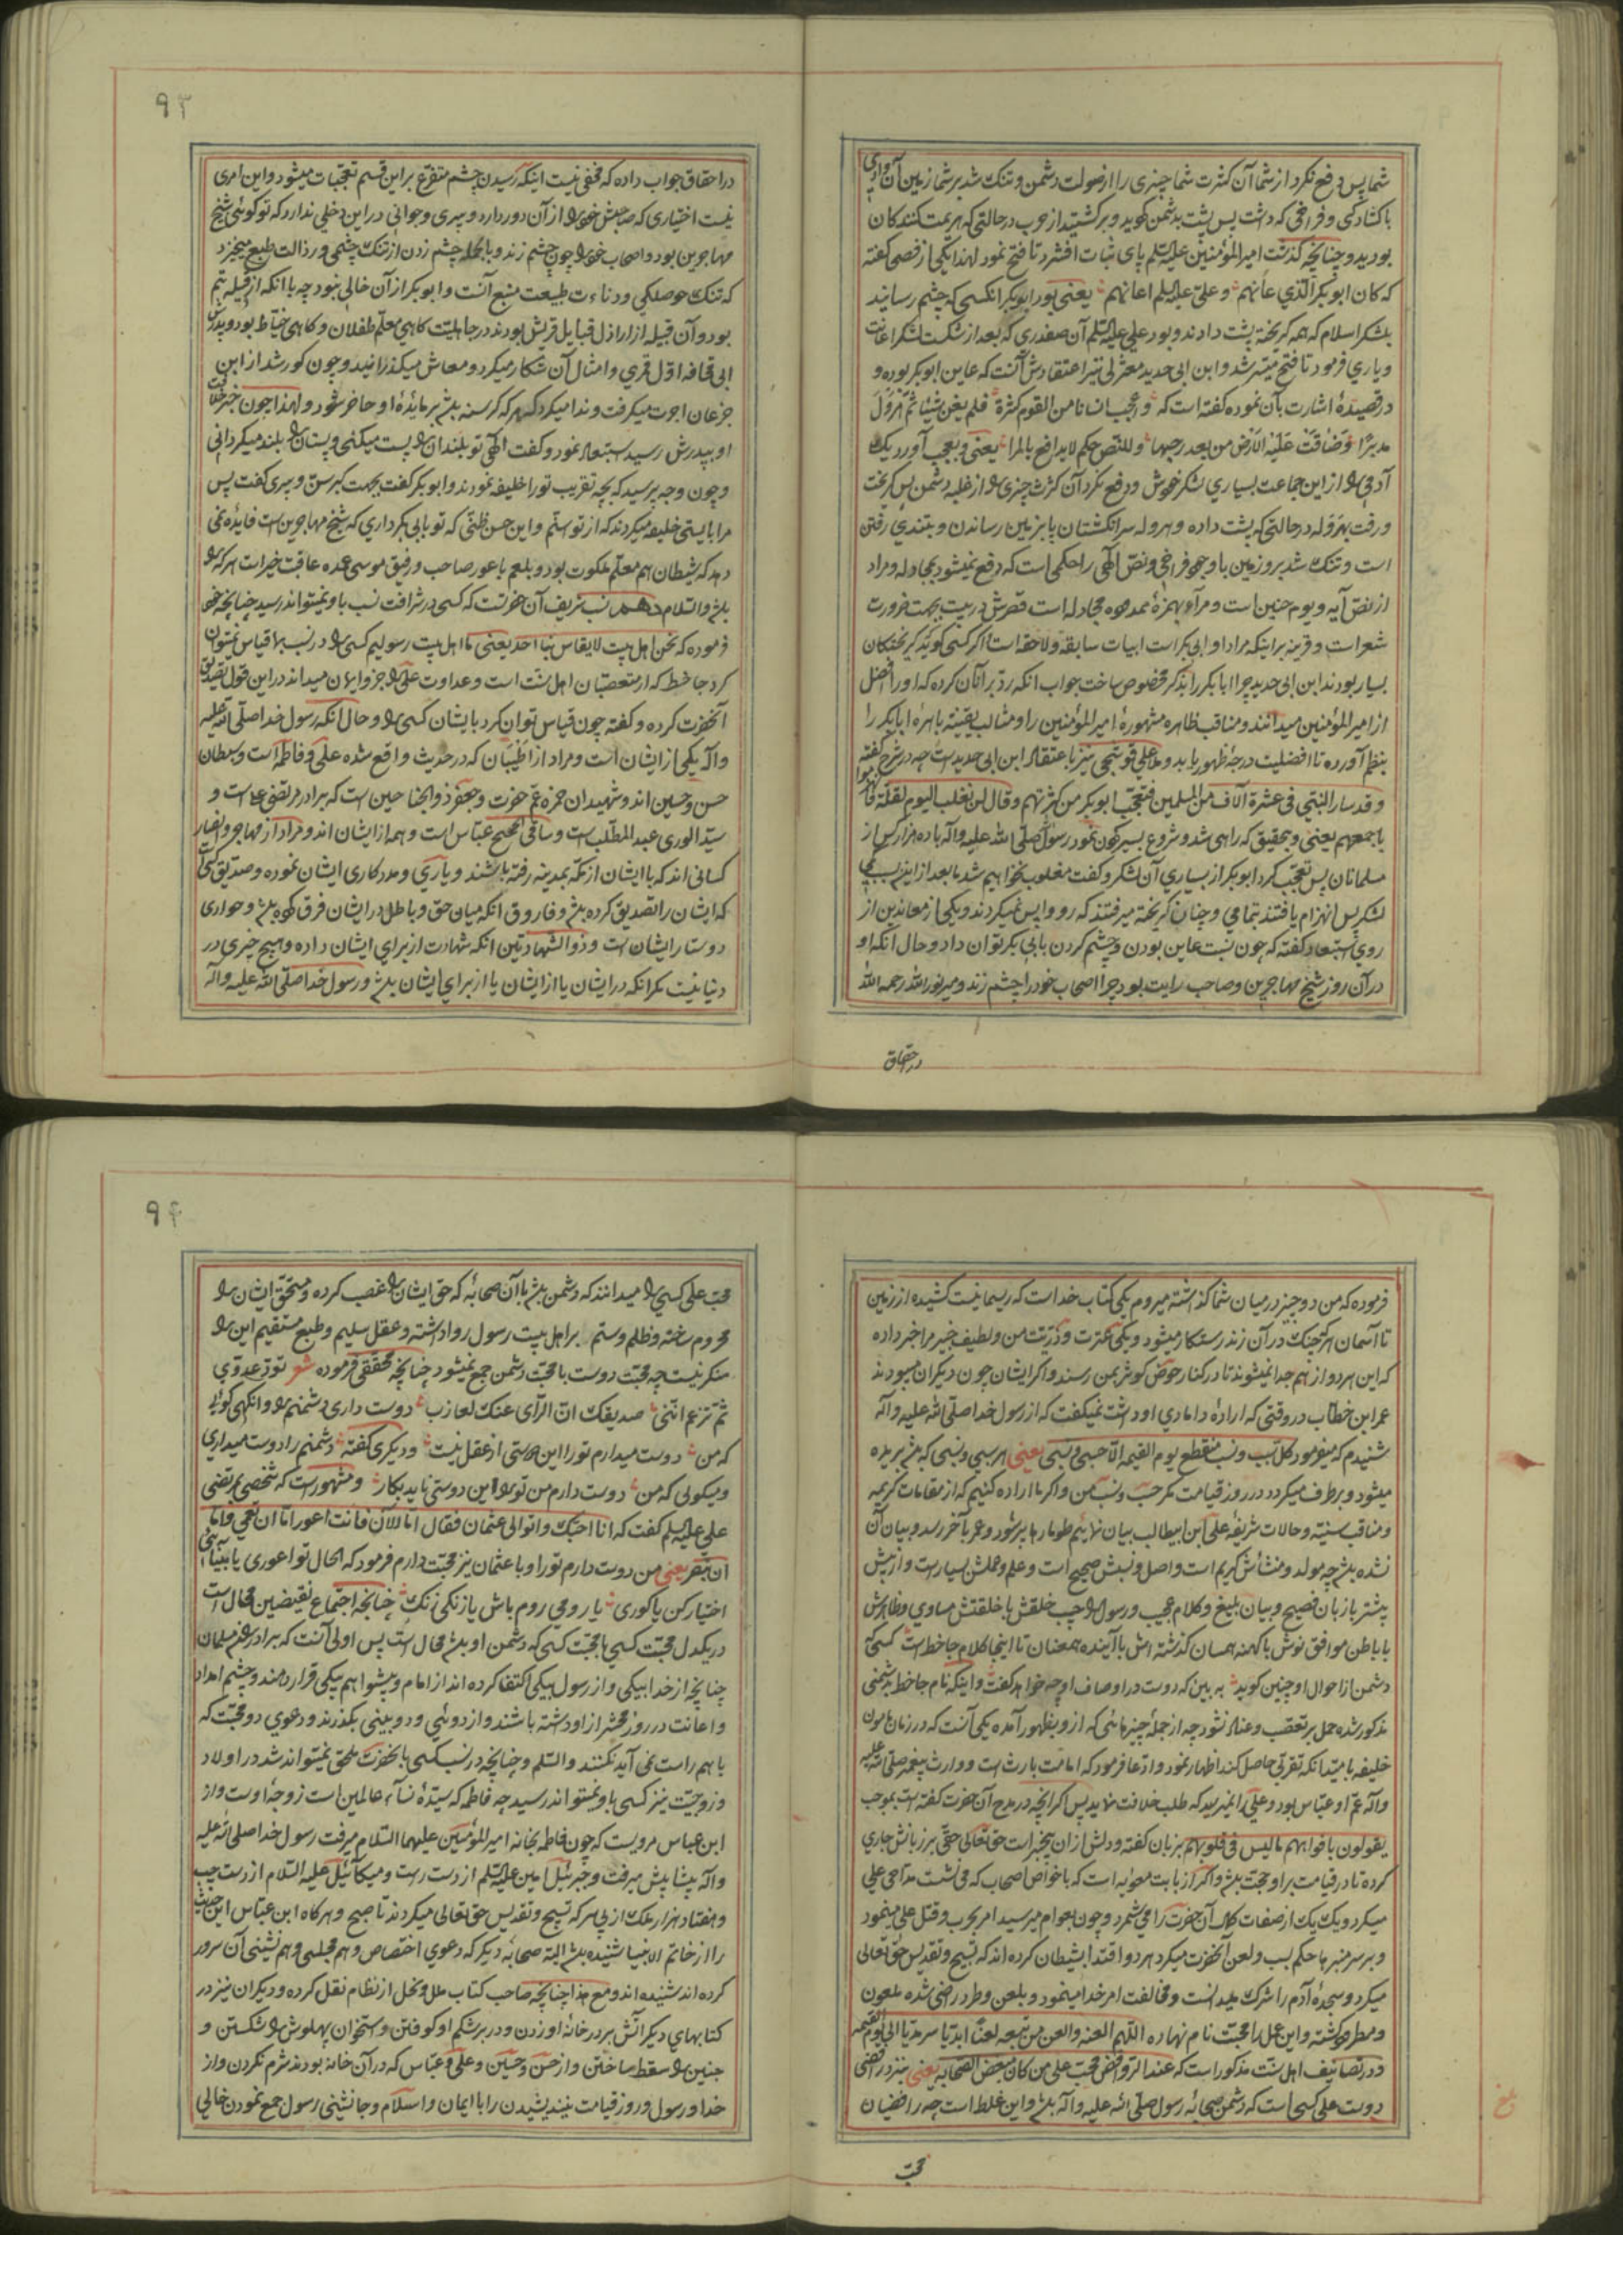 شما پس دفع نکرد از شما آن کثرت شما چیزی را از صولت دشمن و تنک شد بر شما زمین آن وادی
با کشادکی و فراخی که داشت پس پشت بدشمن کردید و برکشتید از حرب در حالتی که هزیمت کنندکان
بودید و چنانچه کذشت امیر المؤمنین علیه السلم پای ثبات افشرد تا فتح نمود لهذا یکی از فصحا کفته
که کان ابو بکر الذی عانهم و علی علیه السلم اعانهم یعنی بود ابو بکر انکسی که چشم رسانید
بلشکر اسلام که همه کریخته پشت دادند و بود علی علیه السلم آن صفدری که بعد از شکست لشکر اعانت
و یاری فرمود تا فتح میسر شد و ابن ابی حدید معتزلی نیز اعتقادش آنست که عاین ابو بکر بوده و
در قصیدهٔ اشارت بآن نموده کفته است که و اعجب انسانا من القوم کثرة فلم یغن شیئا ثم هرول
مدبرا و ضاقت علیه الارض من بعد رحبها و للنص حکم لا یدافع بالمرا یعنی و بعجب آورد یک
آدمی را از این جماعت بسیاری لشکر خویش و دفع نکرد آن کثرت چیزی را از غلبه دشمن پس کریخت
و رفت بهروله در حالتی که پشت داده و هروله سر انکشتان پا بزمین رساندن و بتندی رفتن
است و تنک شد بر او زمین با وجود فراخی و نص الهی را حکمی است که دفع نمیشود بمجادله و مراد
از نص آیه و یوم حنین است و مرآء بهمزهٔ ممدوده مجادله است قصرش در بیت بجهت ضرورت
شعر است و قرینه بر اینکه مراد او ابی بکر است ابیات سابقه و لاحقه است اکر کسی کوید کریختکان
بسیار بودند ابن ابی حدید چرا ابا بکر را بذکر مخصوص ساخت جواب انکه رد بر آنان کرده که او را افضل
از امیر المؤمنین میدانند و مناقب ظاهره مشهورهٔ امیر المؤمنین را و مثالب یقینیه باهرهٔ ابا بکر را
بنظم آورده تا افضلیت درجهٔ ظهور یابد و ملا علی قوشجی نیز با اعتقاد ابن ابی حدید است چه در شرح کفته
و قد سار النبی فی عشرة آلاف من المسلمین فتعجب ابو بکر من کثرتهم و قال لن نغلب الیوم لقلة فانهزموا
باجمعهم یعنی و بتحقیق که راهی شد و شروع بسیر کردن نمود رسول صلی الله علیه و آله با ده هزار کس از
مسلمانان پس تعجب کرد ابو بکر از بسیاری آن لشکر و کفت مغلوب نخواهیم شد ما بعد از این بسبب کمی
لشکر پس انهزام یافتند بتمامی و چنان کریخته میرفتند که رو واپس نمیکردند و یکی از معاندین از
روی استبعاد کفته که چون نسبت عاین بودن و چشم کردن بابی بکر توان داد و حال انکه او
در آن روز شیخ مهاجرین و صاحب رایت بود چرا اصحاب خود را چشم زند و میر نور الله رحمه الله
در احقاق
۹۳
در احقاق جواب داده که مخفی نیست اینکه رسیدن چشم متفرع بر این قسم تعجبات میشود و این امری
نیست اختیاری که صاحبش خود را از آن دور دارد و پیری و جوانی در این دخلی ندارد که تو کوئی شیخ
مهاجرین بود و اصحاب خود را چون چشم زند و بالجمله چشم زدن از تنک چشمی و رذالت طبع میخیزد
که تنک حوصلکی و دناءت طبیعت منبع آنست و ابو بکر از آن خالی نبود چه با انکه از قبیله تیم
بود و آن قبیله از اراذل قبایل قریش بودند در جاهلیت کاهی معلم طفلان و کاهی خیاط بود و پدرش
ابی قحافه اول قمری و امثال آن شکار میکرد و معاش میکذرانید و چون کور شد از ابن
جزعان اجرت میکرفت و ندا میکرد که هر که کرسنه باشد بر مایدهٔ او حاضر شود و لهذا چون خبر خلافت
او بپدرش رسید استبعاد نمود و کفت الهی تو بلندان را پست میکنی و پستان را بلند میکردانی
و چون وجه پرسید که بچه تقریب تو را خلیفه نمودند و ابو بکر کفت بجهت کبر سن و پیری کفت پس
مرا بایستی خلیفه میکردند که از تو اسنم و این حسن ظنی که تو بابی بکر داری که شیخ مهاجرین است فایده نمی
دهد که شیطان هم معلم ملکوت بود و بلعم باعور صاحب و رفیق موسی عمده عاقبت خیر است هر که را
باشد والسلام دهم نسب شریف آن حضرتست که کسی در شرافت نسب باو نمیتواند رسید چنانچه خود
فرموده که نحن اهل بیت لا یقاس بنا احد یعنی ما اهل بیت رسولیم کسی را در نسب بما قیاس نمیتوان
کرد جاحظ که از متعصبان اهل سنت است و عداوت علی را جزو ایمان میداند در این قول تصدیق
آنحضرت کرده و کفته چون قیاس توان کرد بایشان کسی را و حال انکه رسول خدا صلی الله علیه
و آله یکی از ایشان است و مراد از اطیبان که در حدیث واقع شده علی و فاطمه است و سبطان
حسن و حسین اند و شهیدان حمزه عم حضرت و جعفر ذو الجناحین است که برادر مرتضی علی است و
سید الوری عبد المطلب است و ساقی الحجیج عباس است و همه از ایشان اند و مراد از مهاجر و انصار
کسانی اند که با ایشان از مکه بمدینه رفته باشند و یاری و مددکاری ایشان نموده و صدیق کسی
که ایشان را تصدیق کرده باشد و فاروق انکه میان حق و باطل در ایشان فرق کرده باشد و حواری
دوستار ایشان است و ذو الشهادتین انکه شهادت از برای ایشان داده و هیچ خیری در
دنیا نیست مکر انکه در ایشان یا از ایشان یا از برای ایشان باشد و رسول خدا صلی الله علیه و آله
فرموده که من دو چیز در میان شما کذاشته میروم یکی کتاب خداست که ریسمانیست کشیده از زمین
تا آسمان هر که چنک در آن زند رستکار میشود و یکی عترت و ذریت من و لطیف خبیر مرا خبر داده
که این هر دو از هم جدا نمیشوند تا در کنار حوض کوثر بمن رسند و اکر ایشان چون دیکران میبودند
عمر ابن خطاب در وقتی که ارادهٔ دامادی او داشت نمیکفت که از رسول خدا صلی الله علیه و آله
شنیدم که میفرمود کل سبب و نسب منقطع یوم القیمه الا حسبی و نسبی یعنی هر سببی و نسبی که باشد بریده
میشود و برطرف میکردد در روز قیامت مکر حسب و نسب من و اکر ما اراده کنیم که از مقامات کریمه
و مناقب سنیه و حالات شریفهٔ علی ابن ابیطالب بیان نمائیم طومارها پر شود و عمر بآخر رسد و بیان آن
نشده باشد چه مولد و منشائش کریم است و اصل و نسبش صحیح است و علم و عملش بسیار است و از پیش
بیشتر با زبان فصیح و بیان بلیغ و کلام عجیب و رسول را حبیب خلقش با خلقتش مساوی و ظاهرش
با باطن موافق نوش با کهنه همسان کذشته اش با آینده همعنان تا اینجا کلام جاحظ است کسی که
دشمن از احوال او چنین کوید به بین که دوست در اوصاف او چه خواهد کفت و اینکه نام جاحظ بدشمنی
مذکور شده حمل بر تعصب و عناد نشود چه از جملهٔ چیزهائی که از و بظهور آمده یکی آنست که در زمان مامون
خلیفه بامید انکه تقربی حاصل کند اظهار نمود و ادعا فرمود که امامت بارث است و وارث پیغمبر صلی الله علیه
و آله عم او عباس بود و علی را نمیرسید که طلب خلافت نماید پس اکر انچه در مدح آن حضرت کفته است بموجب
یقولون بافواههم ما لیس فی قلوبهم بزبان کفته و دلش از ان بیخبر است حق تعالی حق بر زبانش جاری
کرده تا در قیامت بر او حجت باشد و اکر از بابت معویه است که با خواص اصحاب که می نشست مداحی علی
میکرد و یک یک از صفات کمال آن حضرت را می شمرد و چون بعوام میرسید امر بحرب و قتل علی مینمود
و بر سر منبرها حکم بسب و لعن آنحضرت میکرد هر دو اقتدا بشیطان کرده اند که تسبیح و تقدیس حق تعالی
میکرد و سجدهٔ آدم را شرک میدانست و مخالفت امر خدا مینمود و بلعن و طرد راضی شده ملعون
و مطرود کشته و این عمل را محبت نام نهاده اللهم العنه و العن من تبعه لعنا ابدیا سرمدیا الی یوم القیمه
و در تصانیف اهل سنت مذکور است که عند الروافض محب علی من کان یبغض الصحابه یعنی نزد رافضی
دوست علی کسی است که دشمن صحابهٔ رسول صلی الله علیه و آله باشد و این غلط است چه رافضیان
محب
۹۴
محب علی کسی را میدانند که دشمن باشد با آن صحابهٔ که حق ایشان را غصب کرده و مستحق ایشان را
محروم ساخته و ظلم و ستم بر اهل بیت رسول روا داشته و عقل سلیم و طبع مستقیم این را
منکر نیست چه محبت دوست با محبت دشمن جمع نمیشود چنانچه محققی فرموده شعر تود عدوی
ثم تزعم اننی صدیقک ان الرأی عنک لعازب دوست داری دشمنم را وانکهی کوئی
که من دوست میدارم تو را این دوستی از عقل نیست و دیکری کفته دشمنم را دوست میداری
و میکوئی که من دوست دارم من تو را این دوستی ناید بکار و مشهور است که شخصی بمرتضی
علی علیه السلم کفت که انا احبک و اتوالی عثمان فقال اما الآن فانت اعور اما ان تعمی و اما
ان تبصر یعنی من دوست دارم تو را و با عثمان نیز محبت دارم فرمود که الحال تو اعوری یا بینائی
اختیار کن یا کوری یا رومی روم باش یا زنکی زنک چنانچه اجتماع نقیضین محال است
در یکدل محبت کسی با محبت کسی که دشمن او باشد محال است پس اولی آنست که برادر مسلمان
چنانچه از خدا بیکی و از رسول بیکی اکتفا کرده اند از امام و پیشوا هم بیکی قرار دهند و چشم امداد
و اعانت در روز محشر از او داشته باشند و از دوئی و دو بینی بکذرند و دعوی دو محبت که
با هم راست نمی آید نکنند والسلم و چنانچه در نسب کسی بآنحضرت ملحق نمیتواند شد در اولاد
و زوجیت نیز کسی باو نمیتواند رسید چه فاطمه که سیدهٔ نسآء عالمین است زوجهٔ اوست و از
ابن عباس مرویست که چون فاطمه بخانه امیر المؤمنین علیهما السلام میرفت رسول خدا صلی الله علیه
و آله پیشاپیش میرفت و جبرئیل امین علیه السلم از دست راست و میکائیل علیه السلام از دست چپ
و هفتاد هزار ملک از پی سر که تسبیح و تقدیس حق تعالی میکردند تا صبح و هرکاه ابن عباس این حدیث
را از خاتم الانبیا شنیده باشد البته صحابهٔ دیکر که دعوی اختصاص و هم مجلسی و هم نشینی آن سرور
کرده اند شنیده اند و مع هذا چنانچه صاحب کتاب ملل و نحل از نظام نقل کرده و دیکران نیز در
کتابهای دیکر آتش بر در خانهٔ او زدن و در بر شکم او کوفتن و استخوان پهلویش را شکستن و
جنین را سقط ساختن و از حسن و حسین و علی و عباس که در آن خانه بودند شرم نکردن و از
خدا و رسول و روز قیامت نیندیشیدن را با ایمان و اسلام و جانشینی رسول جمع نمودن خالی